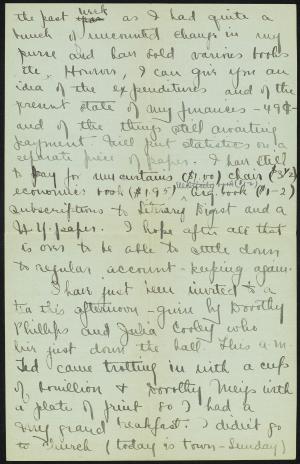 the past week as I had quite a
bunch of uncounted change in my
purse and have sold various books
etc. However, I can give you an
idea of the expenditures and of the
present state of my finances - 49¢ -
and of the things still awaiting
payment. Will put statistics on a
separate piece of paper. I have still
to pay for my curtains ($1.00) chair ($3½)
economics book ($1.95), arg. book ($1-2)
subscriptions to Literary Digest and a
N.Y. paper. I hope after all that
is over to be able to settle down
to regular account-keeping again.
I have just been invited to a
tea this afternoon - given by Dorothy
Phillips and Julia Cooley who
live just down the hall. This a.m.
Ted came trotting in with a cup
of bouillon & Dorothy Meigs with
a plate of fruit so I had a
very grand breakfast. I didn't go
to church (today is Town-Sunday)